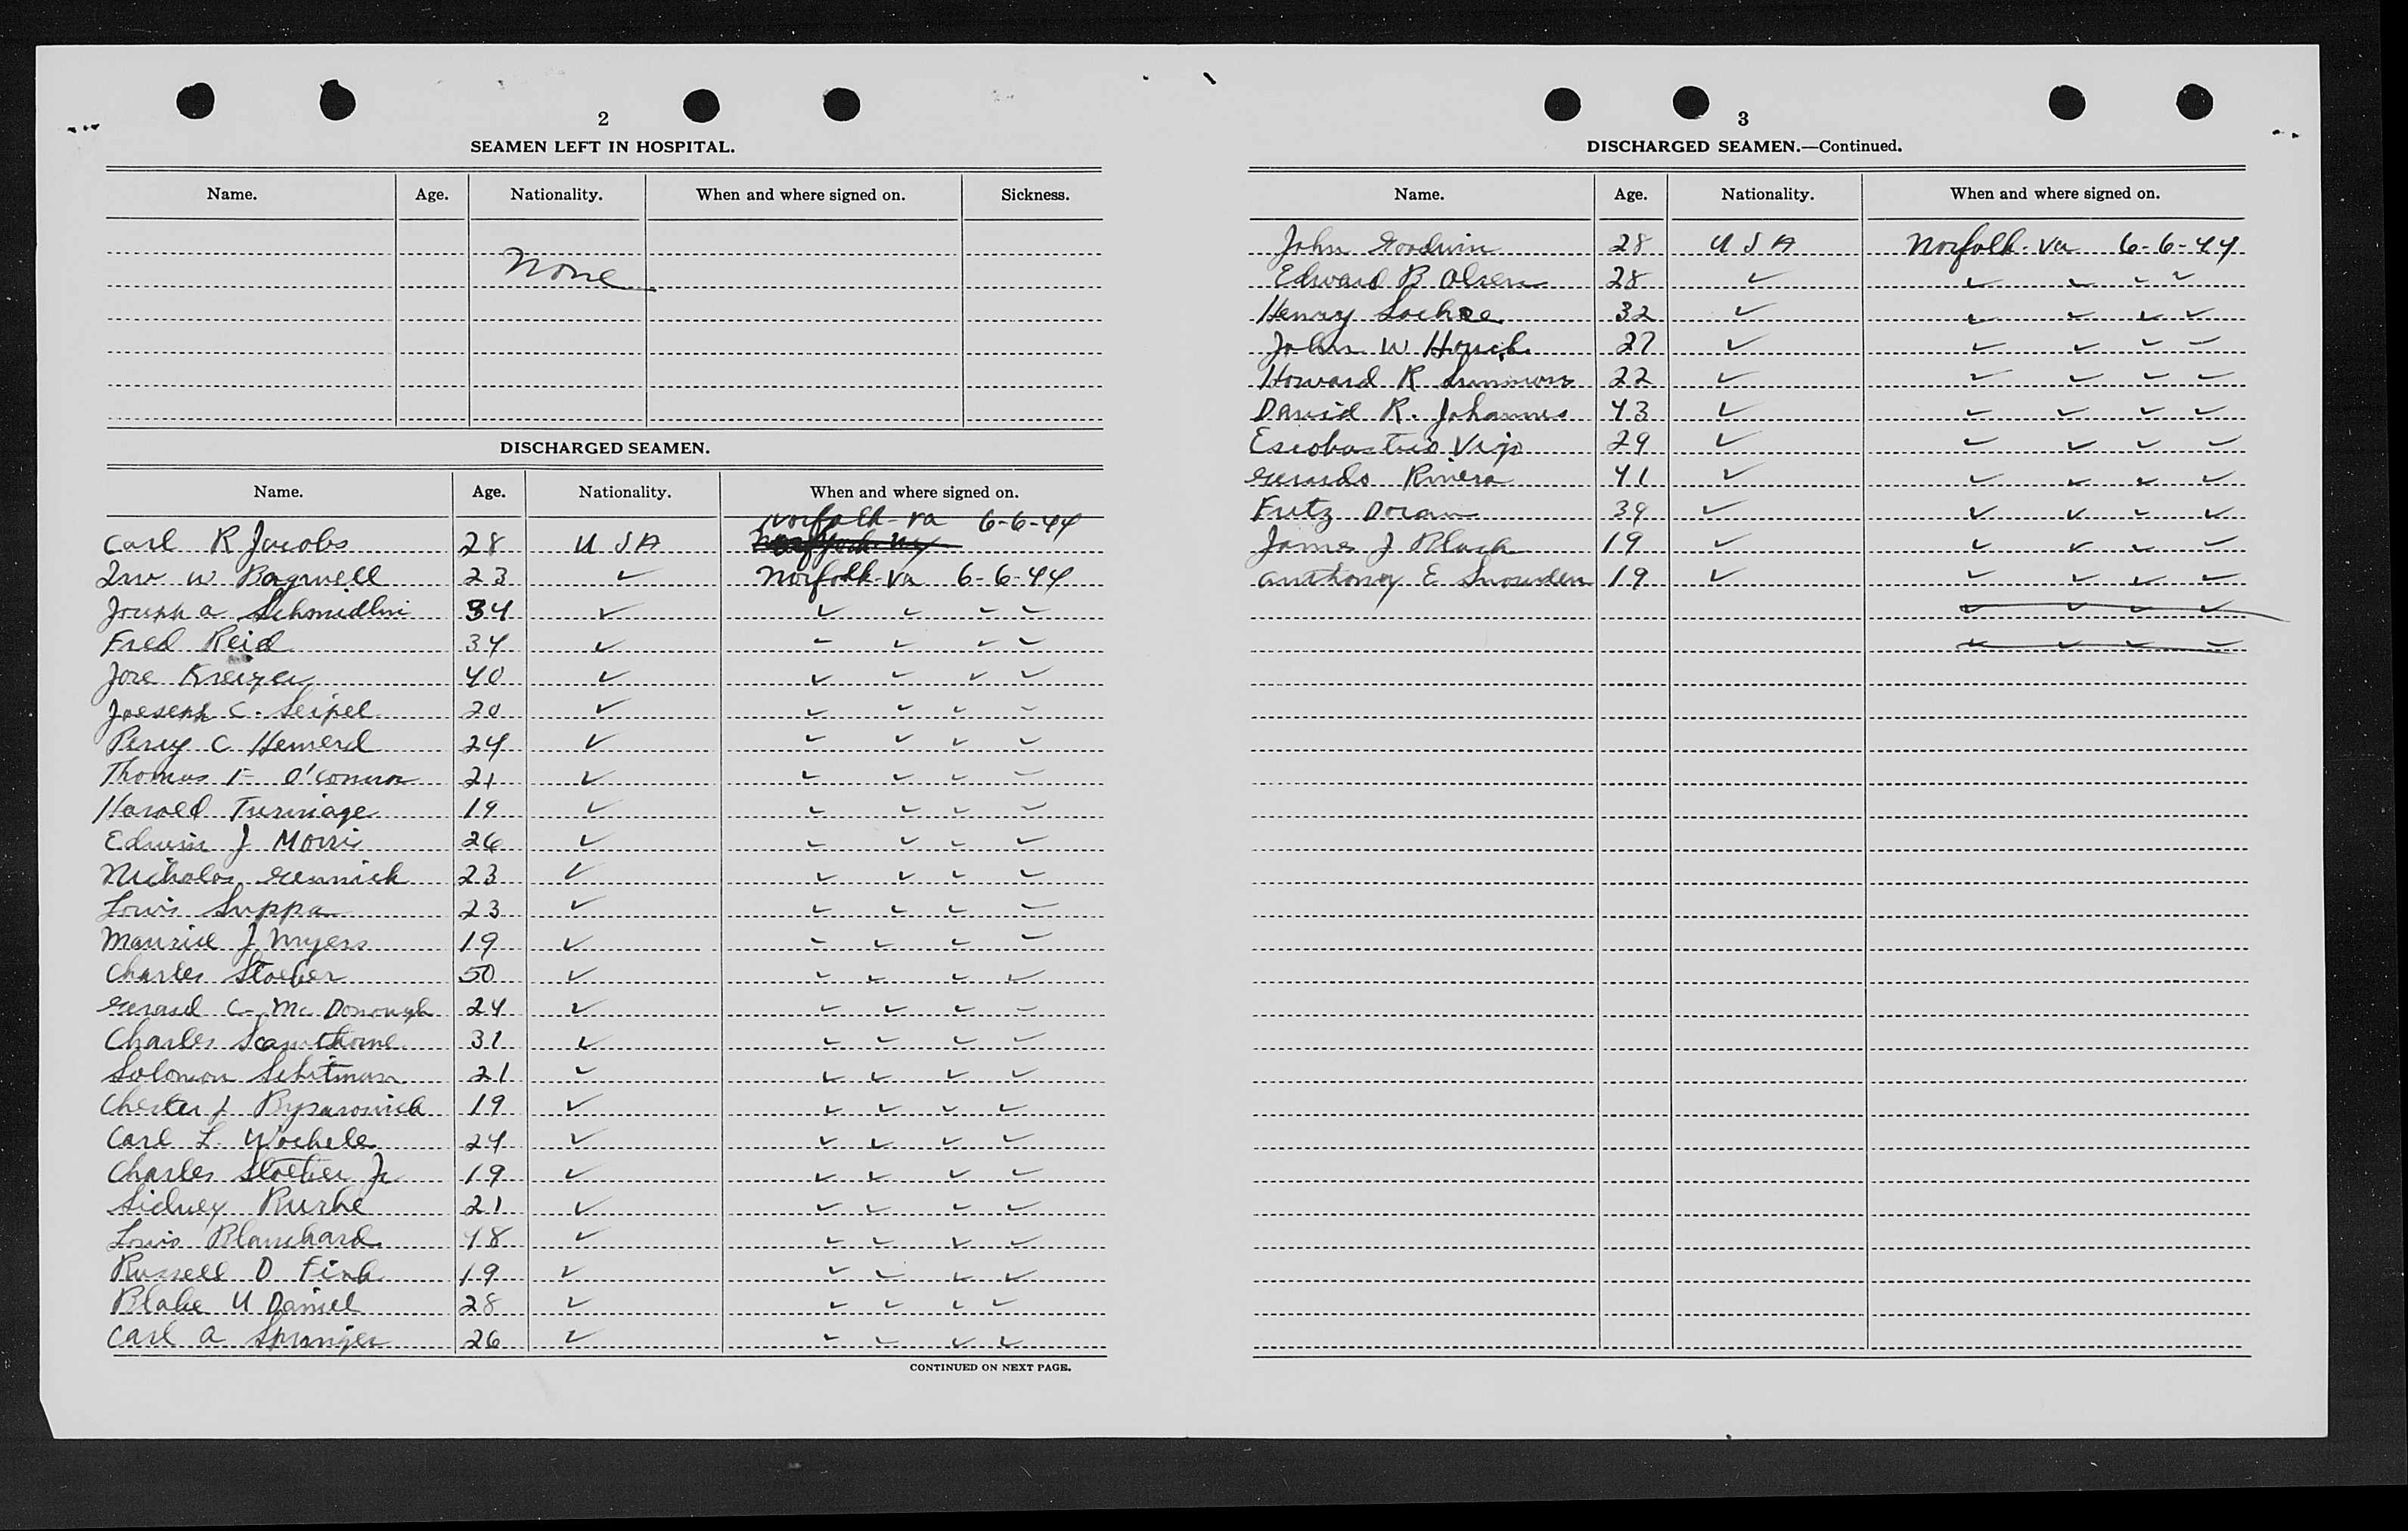 2
SEAMEN LEFT IN HOSPITAL.
Name. Age. Nationality. When and where signed on. Sickness.
None
DISCHARGED SEAMEN.
Name. Age. Nationality. When and where signed on.
Norfolk-Va 6-6-44
Carl R Jacobs 28 U S A
W Bagwell 23 ✓ Norfolk-Va 6-6-44
Joseph A Schmidlin 34 ✓ ✓ ✓ ✓ ✓
Fred Reid 34 ✓ ✓ ✓ ✓ ✓
Jose Kreizer 40 ✓ ✓ ✓ ✓ ✓
Joeseph C. Seipel 20 ✓ ✓ ✓ ✓ ✓
Percy C Hemerd 24 ✓ ✓ ✓ ✓ ✓
Thomas F O'Connor 21 ✓ ✓ ✓ ✓ ✓
Harold Turnage 19 ✓ ✓ ✓ ✓ ✓
Edwin J Morris 26 ✓ ✓ ✓ ✓ ✓
Nicholas Gennick 23 ✓ ✓ ✓ ✓ ✓
Louis Suppa 23 ✓ ✓ ✓ ✓ ✓
Maurice J Myers 19 ✓ ✓ ✓ ✓ ✓
Charles Stoeber 50 ✓ ✓ ✓ ✓ ✓
Gerard C. McDonough 24 ✓ ✓ ✓ ✓ ✓
Charles Scawthorne 31 ✓ ✓ ✓ ✓ ✓
Solomon Schitman 21 ✓ ✓ ✓ ✓ ✓
Chester J 19 ✓ ✓ ✓ ✓ ✓
Carl L. Wochele 24 ✓ ✓ ✓ ✓ ✓
Charles Stoeber Jr 19 ✓ ✓ ✓ ✓ ✓
Sidney 21 ✓ ✓ ✓ ✓ ✓
Louis Blanchard 48 ✓ ✓ ✓ ✓ ✓
Russell D Fink 19 ✓ ✓ ✓ ✓ ✓
Blake U Daniel 28 ✓ ✓ ✓ ✓ ✓
Carl A Springer 26 ✓ ✓ ✓ ✓ ✓
CONTINUED ON NEXT PAGE.
3
DISCHARGED SEAMEN.—Continued.
Name. Age. Nationality. When and where signed on.
John Goodwin 28 U S A Norfolk-Va 6-6-44
Edward B Olsen 28 ✓ ✓ ✓ ✓ ✓
Henry 32 ✓ ✓ ✓ ✓ ✓
John W Houck 27 ✓ ✓ ✓ ✓ ✓
Howard R 22 ✓ ✓ ✓ ✓ ✓
David R. Johannes 43 ✓ ✓ ✓ ✓ ✓
Vijo 29 ✓ ✓ ✓ ✓ ✓
Gerardo Rivera 41 ✓ ✓ ✓ ✓ ✓
Fritz Doran 39 ✓ ✓ ✓ ✓ ✓
James J Black 19 ✓ ✓ ✓ ✓ ✓
Anthony E Snowden 19 ✓ ✓ ✓ ✓ ✓